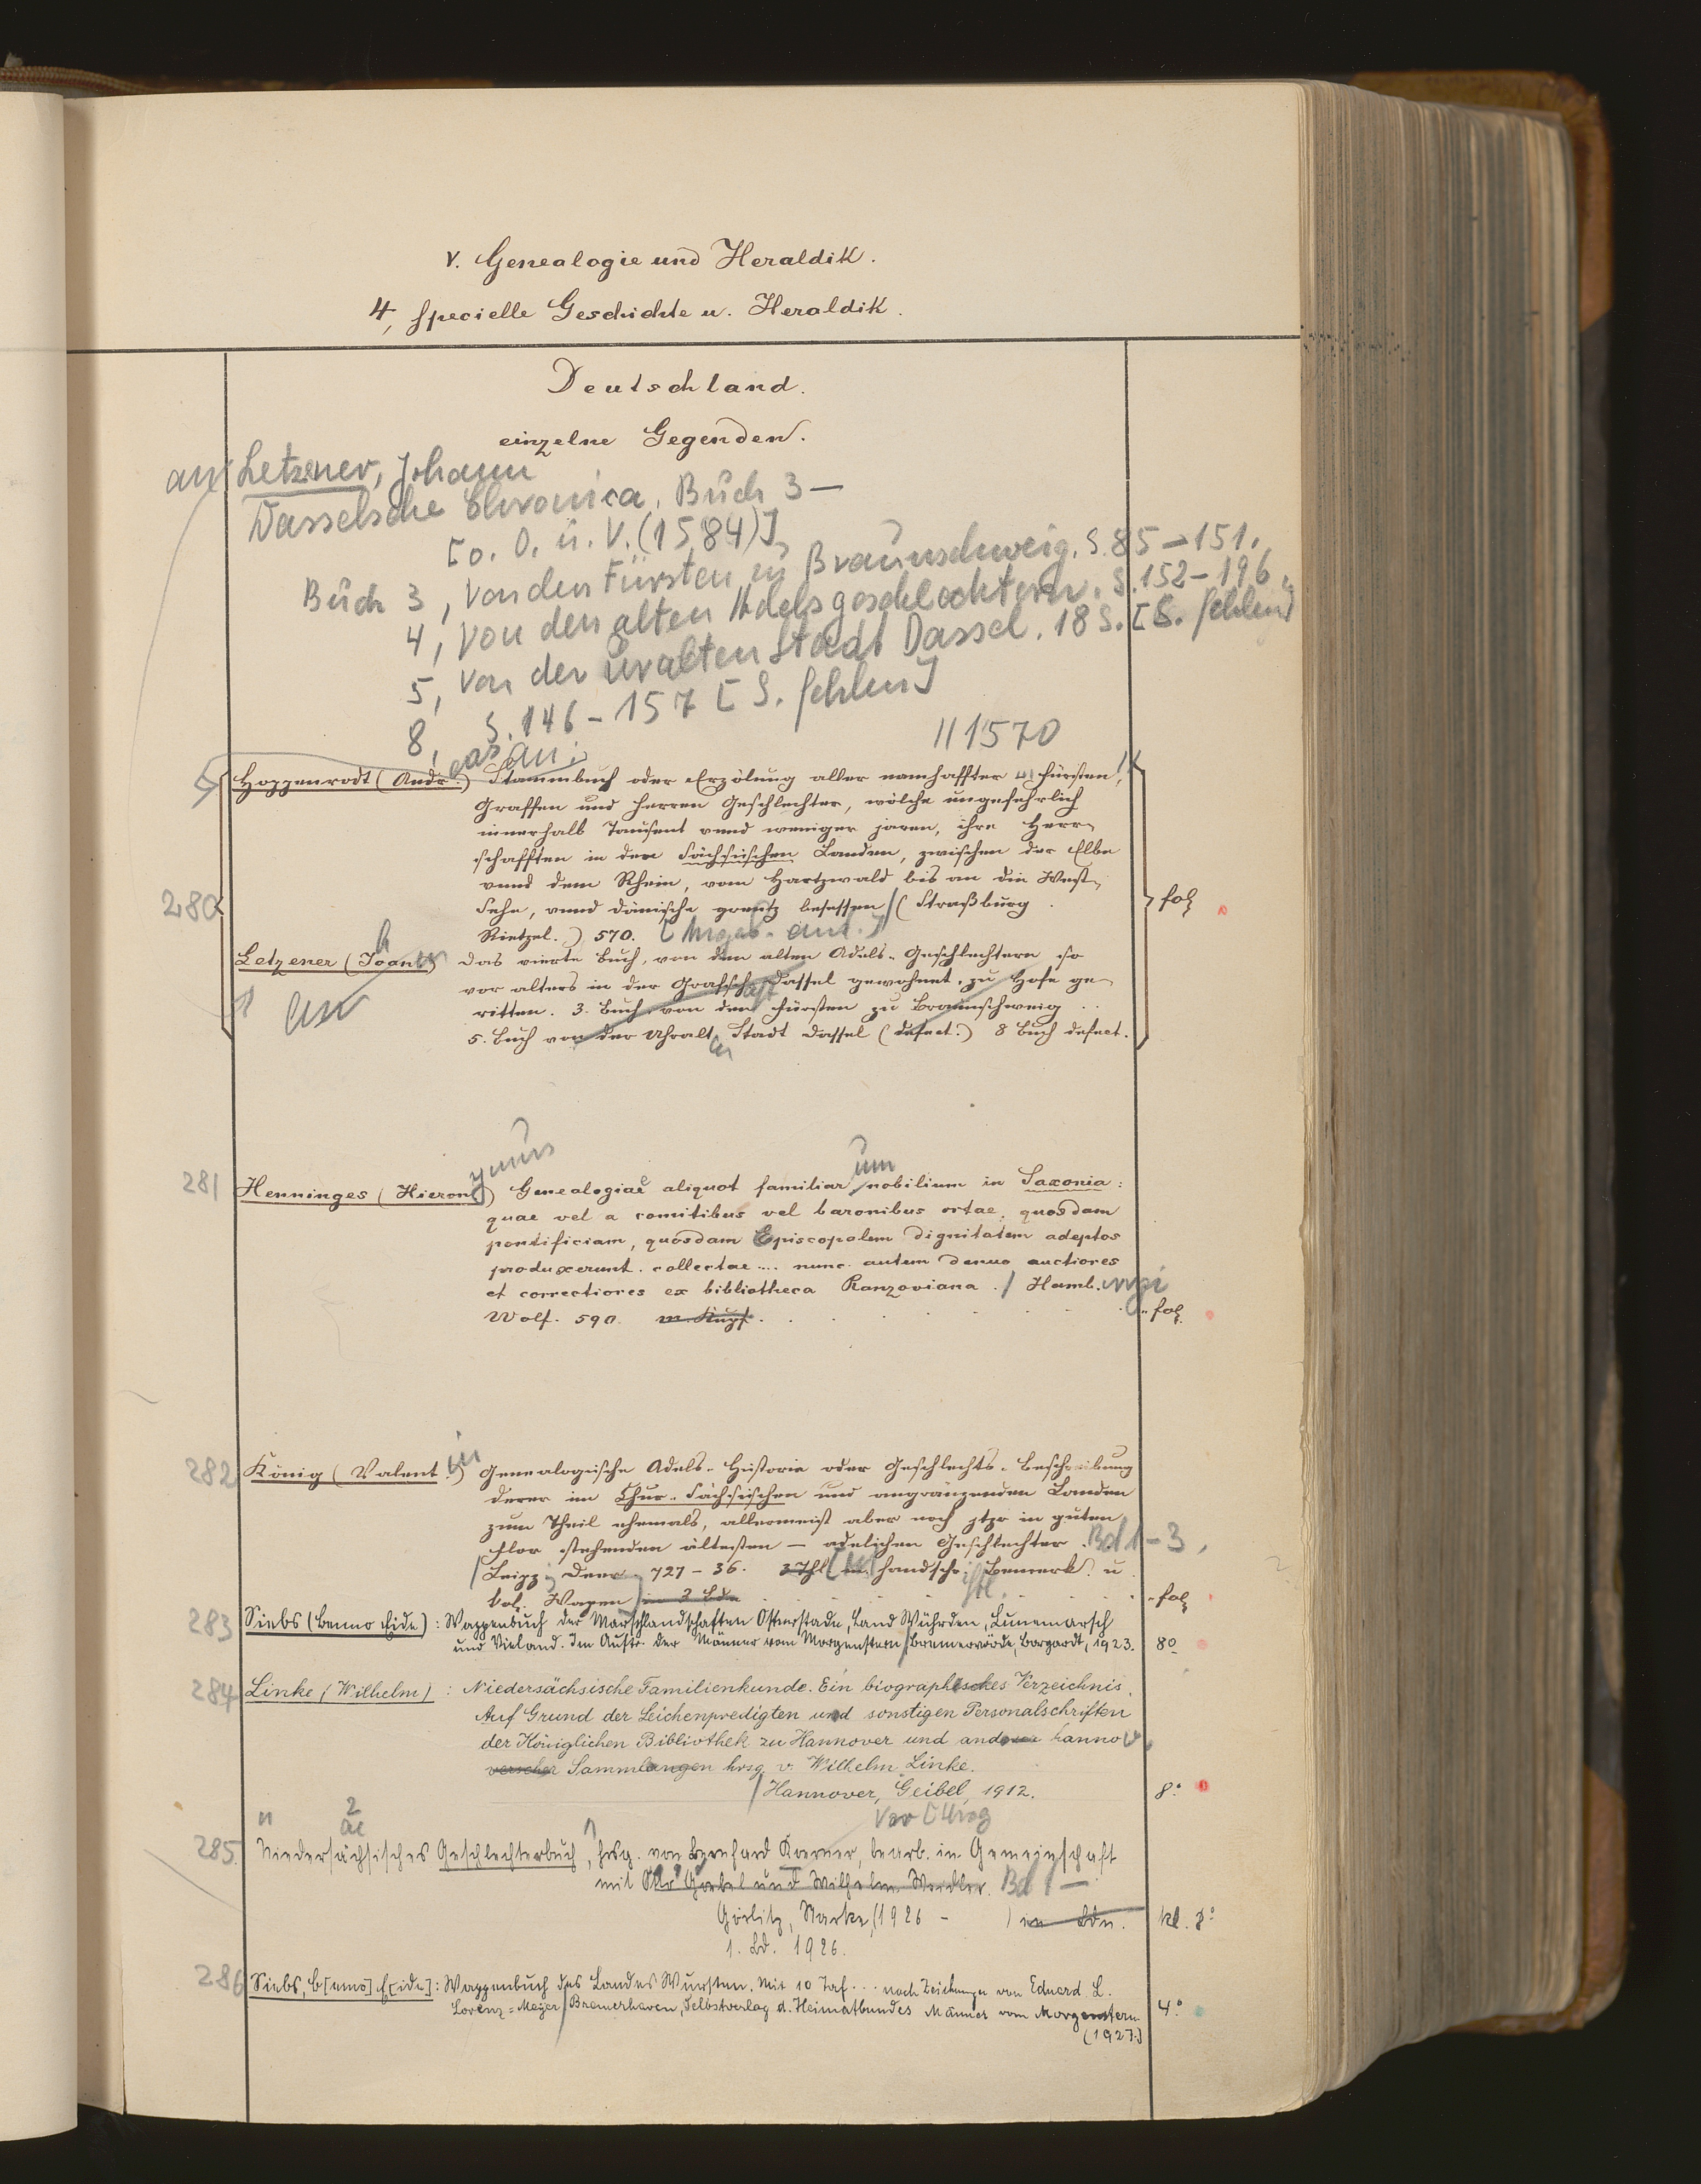 V. Genealogie und Heraldik.
4, specielle Geschichte u. Heraldik.
Deutschland.
einzelne Gegenden.
an Letzener, Johann
Dasselsche Chronica, Buch 3 —
[o. O. u. V. (1584)]
Buch 3, Von den Fürsten zu Braunschweig. S. 85 — 151.
4, Von den alten Adelsgeschlechtern. S. 152 - 196
5, Von der uralten Stadt Dassel. 18 S. [S. fehlen]
8, S. 146 - 157 [S. fehlen]
// 1570
Hoppenrodt (Andr.) Stammbuch oder Erzölung aller namhaffter u fürsten
Graffen und Herren Geschlechter, wölche ungefehrlich
innerhalb Tausent vnnd weniger jaren, ihre Herr-
schafften in den Sächsischen Landen, zwischen der Elbe
vnnd dem Rhein, vom Hartzwald bis an die West-
280
Sehe, vnnd dänische grentz besessen / (Straßburg
fol
Rietzel.) 570.
Letzener (Joan) Das vierte Buch, von den alten Adels-Geschlechtern so
vor alters in der Grafschaft Dassel gewohnet, zu Hofe ge-
ritten. 3. Buch von den Fürsten zu Braunschweig
5. Buch von der Uhralten Stadt Dassel (defect.) 8 Buch defect.
281 Henninges (Hieronymus) Genealogiae aliquot familiarum nobilium in Saxonia:
quae vel a comitibus vel baronibus ortae, quosdam
pontificiam, quosdam Episcopalem dignitatem adeptos
produxerunt. collectae .... nunc autem denuo auctiores
et correctiores ex bibliotheca Ranzoviana. / Hamb.
Wolf. 590. m. Kupf. fol.
282 König (Valentin) Genealogische Adels-Historie oder Geschlechts-Beschreibung
derer im Chur-Sächsischen und angränzenden Landen
zum Theil ehemals, allermeist aber noch jtzo in guten
Flor stehenden ältesten — adelichen Geschlechter. Bd 1-3,
/ Leipz. Deer 727-36. 3 Thl (m handschr. Bemerk. u
kol. Wapen) in 3 Bde fol
283 Siebs (Benno Eide): Wappenbuch der Marschlandschaften Osterstade, Land Wührden, Lunemarsch
und Vieland. Im Auftr. der Männer vom Morgenstern / Bremervörde, Borgardt, 1923. 8o
284 Linke (Wilhelm): Niedersächsische Familienkunde. Ein biographisches Verzeichnis.
Auf Grund der Leichenpredigten und sonstigen Personalschriften
der Königlichen Bibliothek zu Hannover und anderen hanno
verscher Sammlungen hrsg. v. Wilhelm Linke.
/ Hannover, Geibel, 1912. 8°
285. Niedersächsisches Geschlechterbuch, hrsg. von Bernhard Koerner, bearb. in Gemeinschaft
mit Otto Goebel und Wilhelm Weidler. Bd 1 —
Görlitz, Starke, (1926 - ) in Bdn. kl. 8°
1. Bd. 1926.
286 Siebs, B[enno] E[ide]: Wappenbuch des Landes Wursten. Mit 10 Taf. ... nach Zeichnungen von Eduard L.
Lorenz-Meyer / Bremerhaven, Selbstverlag d. Heimatbundes Männer vom Morgenstern 4°
(1927.)